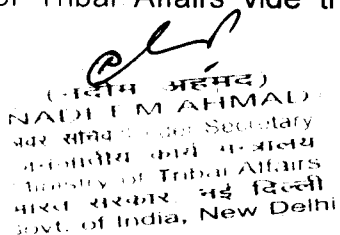 of Tribal Affairs vide th
(नदीम अहमद)
NADEEM AHMAD
अवर सचिव Under Secretary
जनजातीय कार्य मंत्रालय
Ministry of Tribal Affairs
भारत सरकार, नई दिल्ली
Govt. of India, New Delhi